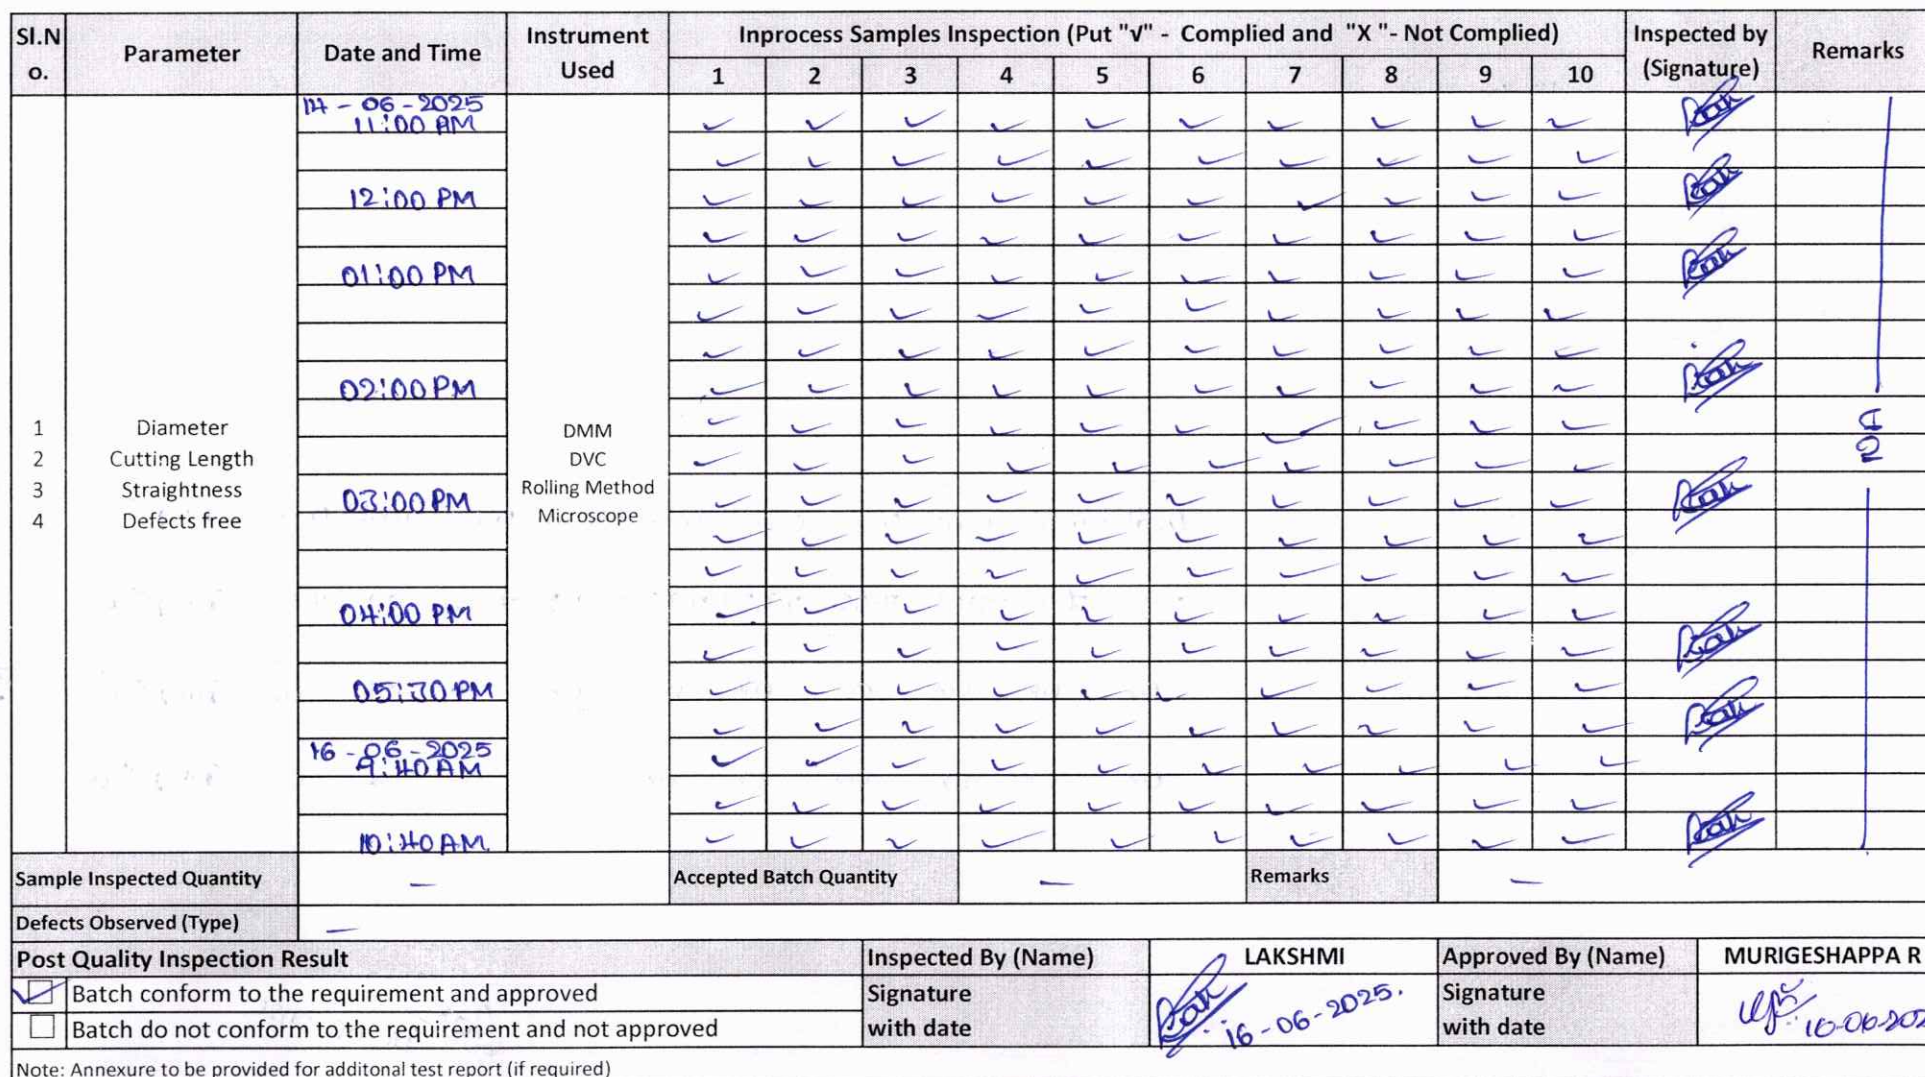 Sl.No. Parameter Date and Time Instrument Used Inprocess Samples Inspection (Put "√" - Complied and "X "- Not Complied) Inspected by (Signature) Remarks
1 2 3 4 5 6 7 8 9 10
14-06-2025
11:00 AM ✓ ✓ ✓ ✓ ✓ ✓ ✓ ✓ ✓ ✓
✓ ✓ ✓ ✓ ✓ ✓ ✓ ✓ ✓ ✓
12:00 PM ✓ ✓ ✓ ✓ ✓ ✓ ✓ ✓ ✓ ✓
✓ ✓ ✓ ✓ ✓ ✓ ✓ ✓ ✓ ✓
01:00 PM ✓ ✓ ✓ ✓ ✓ ✓ ✓ ✓ ✓ ✓
✓ ✓ ✓ ✓ ✓ ✓ ✓ ✓ ✓ ✓
✓ ✓ ✓ ✓ ✓ ✓ ✓ ✓ ✓ ✓
02:00 PM ✓ ✓ ✓ ✓ ✓ ✓ ✓ ✓ ✓ ✓
1 Diameter DMM ✓ ✓ ✓ ✓ ✓ ✓ ✓ ✓ ✓ ✓ NA
2 Cutting Length DVC ✓ ✓ ✓ ✓ ✓ ✓ ✓ ✓ ✓ ✓
3 Straightness 03:00 PM Rolling Method ✓ ✓ ✓ ✓ ✓ ✓ ✓ ✓ ✓ ✓
4 Defects free Microscope ✓ ✓ ✓ ✓ ✓ ✓ ✓ ✓ ✓ ✓
✓ ✓ ✓ ✓ ✓ ✓ ✓ ✓ ✓ ✓
04:00 PM ✓ ✓ ✓ ✓ ✓ ✓ ✓ ✓ ✓ ✓
✓ ✓ ✓ ✓ ✓ ✓ ✓ ✓ ✓ ✓
05:30 PM ✓ ✓ ✓ ✓ ✓ ✓ ✓ ✓ ✓ ✓
✓ ✓ ✓ ✓ ✓ ✓ ✓ ✓ ✓ ✓
16-06-2025
9:40 AM ✓ ✓ ✓ ✓ ✓ ✓ ✓ ✓ ✓ ✓
✓ ✓ ✓ ✓ ✓ ✓ ✓ ✓ ✓ ✓
10:40 AM. ✓ ✓ ✓ ✓ ✓ ✓ ✓ ✓ ✓ ✓
Sample Inspected Quantity — Accepted Batch Quantity — Remarks —
Defects Observed (Type) —
Post Quality Inspection Result Inspected By (Name) LAKSHMI Approved By (Name) MURIGESHAPPA R
✓ Batch conform to the requirement and approved Signature with date 16-06-2025. Signature with date
Batch do not conform to the requirement and not approved
Note: Annexure to be provided for additonal test report (if required)